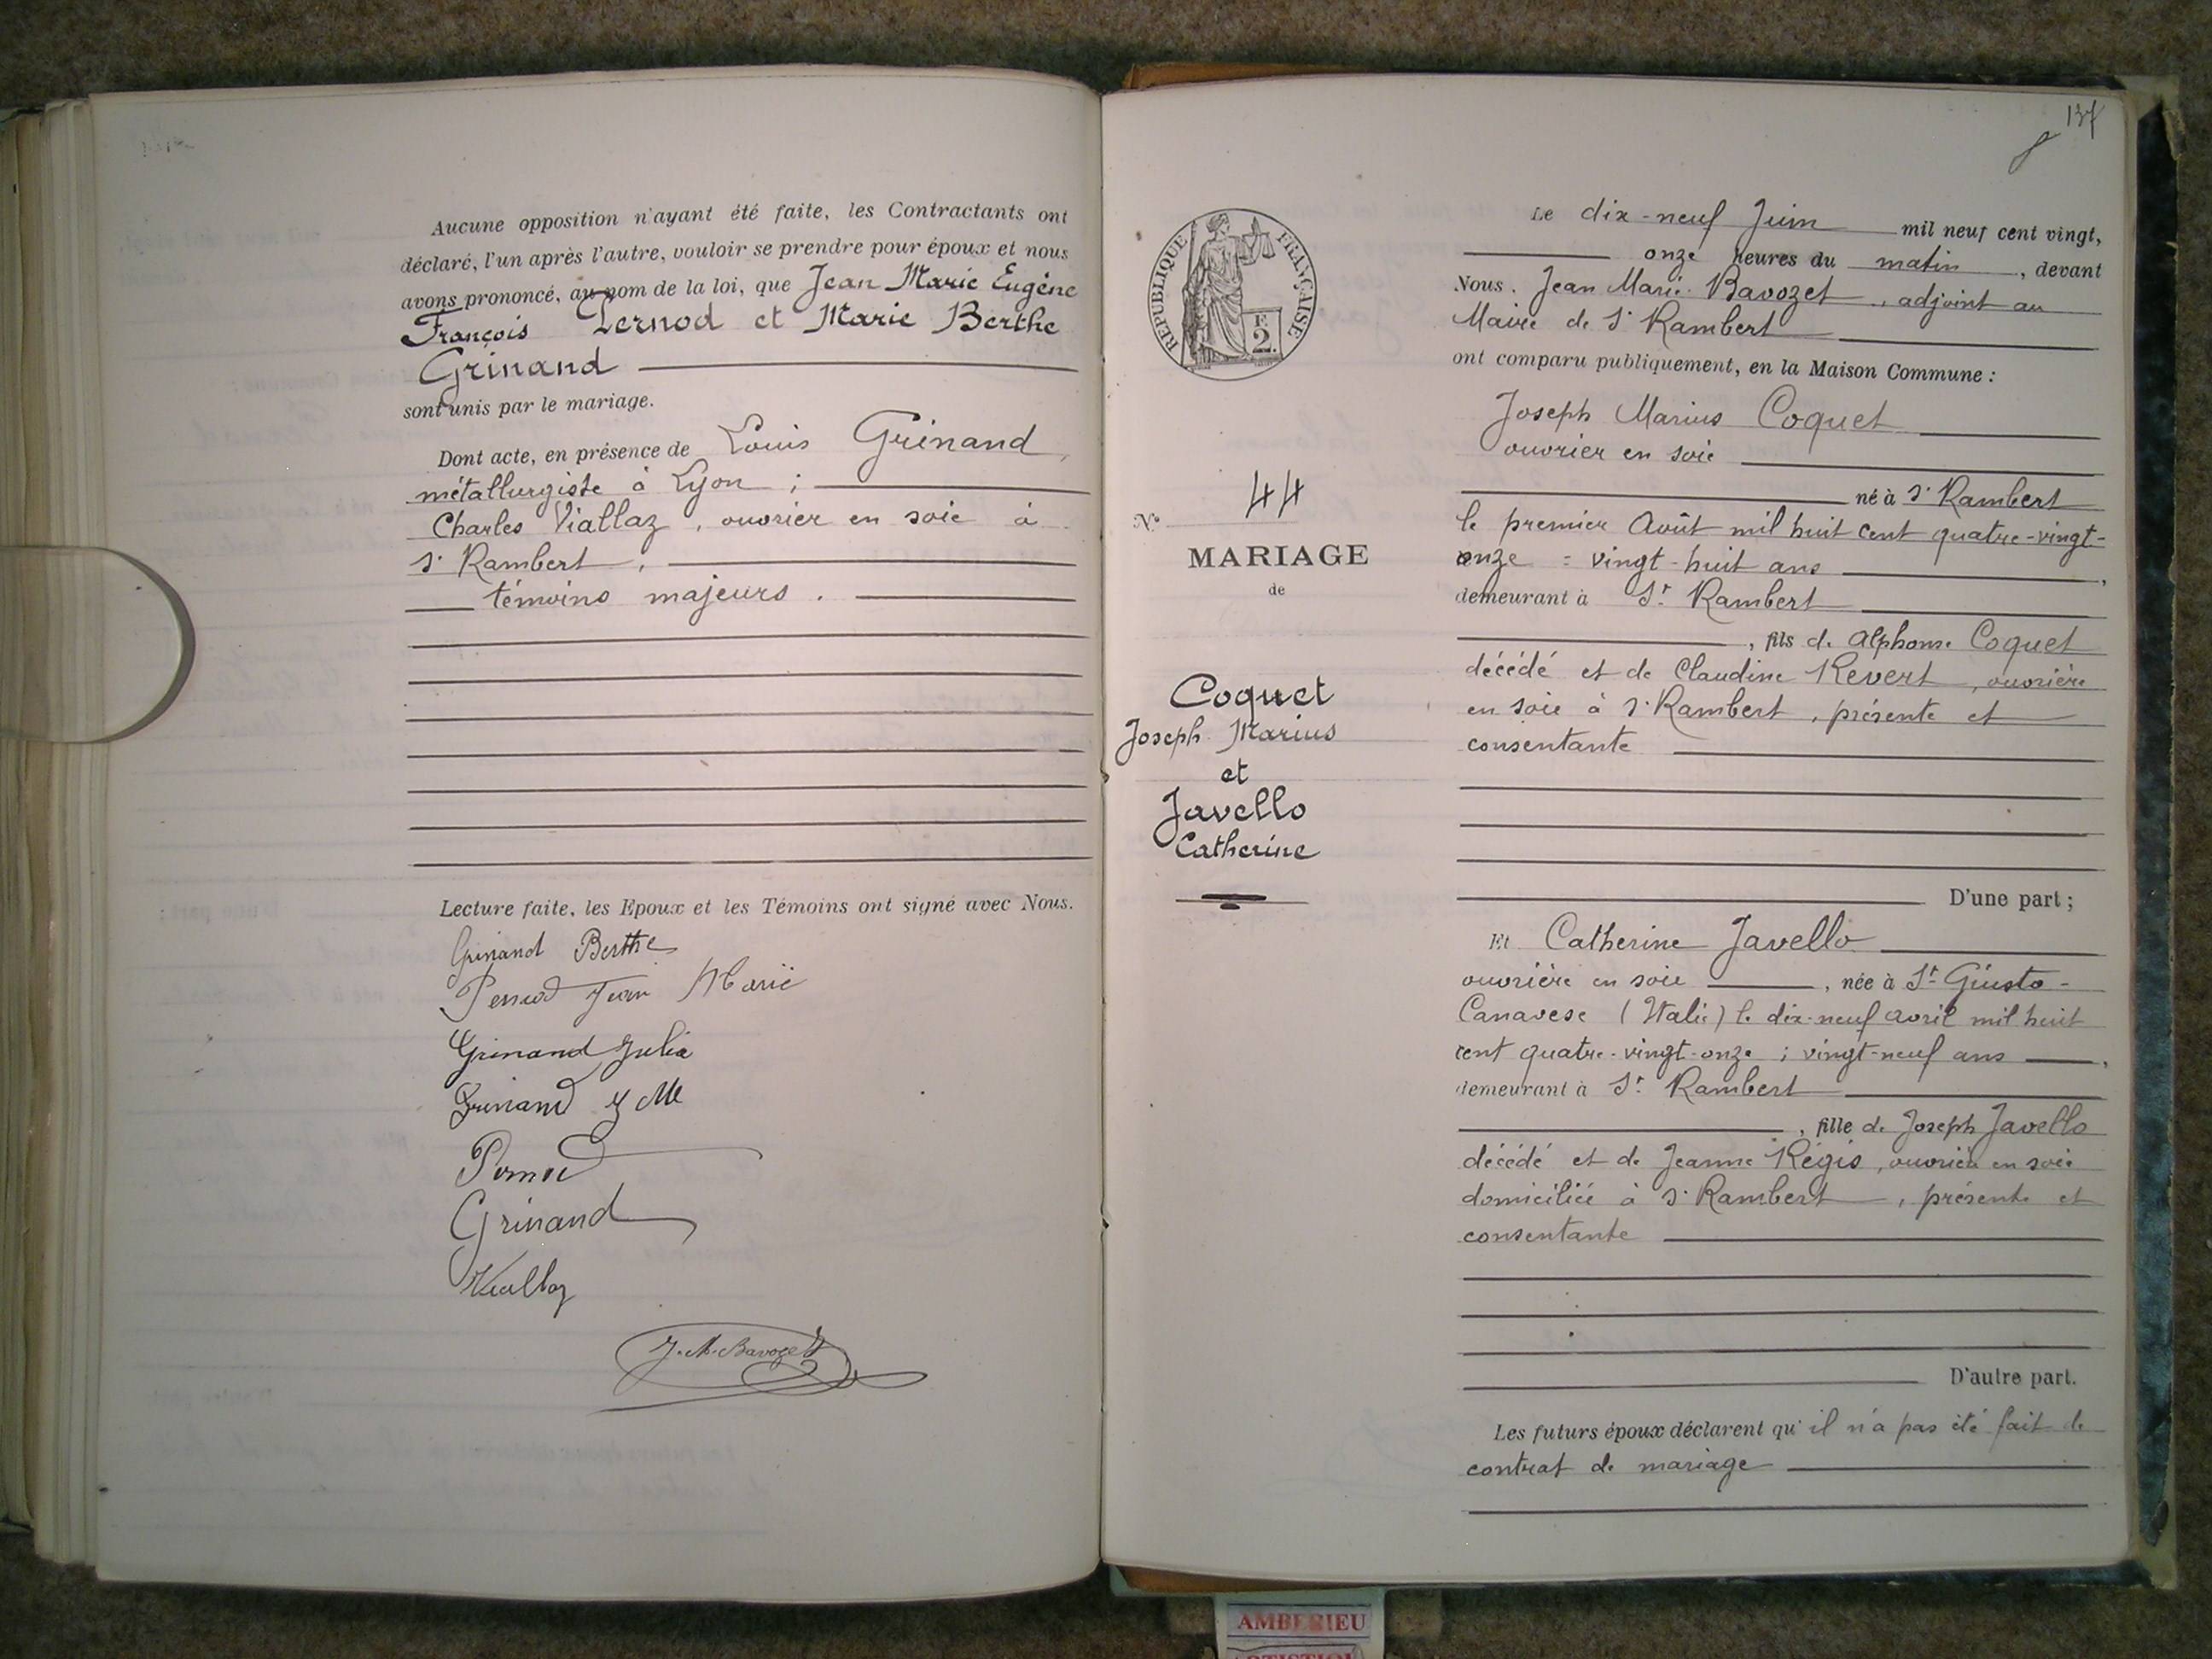 Aucune opposition n'ayant été faite, les Contractants ont
déclaré, l'un après l'autre, vouloir se prendre pour époux et nous
avons prononcé, au nom de la loi, que Jean Marie Eugène
François Pernod et Marie Berthe
Grinand
sont unis par le mariage.
Dont acte, en présence de Louis Grinand,
métallurgiste à Lyon ;
Charles Viallaz, ouvrier en soie à
St Rambert,
témoins majeurs.
Lecture faite, les Epoux et les Témoins ont signé avec Nous.
Grinand Berthe
Pernod Jean Marie
Grinand Julia
Grinand
Pernod
Grinand
Viallaz
J. M. Bavozet
137
REPUBLIQUE FRANÇAISE
F.
2.
N° 44
MARIAGE
de
Coquet
Joseph Marius
et
Javello
Catherine
Le dix-neuf Juin mil neuf cent vingt,
onze heures du matin, devant
Nous. Jean Marie Bavozet, adjoint au
Maire de St Rambert
ont comparu publiquement, en la Maison Commune :
Joseph Marius Coquet
ouvrier en soie
né à St Rambert
le premier Août mil huit cent quatre-vingt-
onze = vingt-huit ans,
demeurant à St Rambert
, fils de Alphonse Coquet
décédé et de Claudine Revert, ouvrière
en soie à St Rambert, présente et
consentante
D'une part ;
Et Catherine Javello
ouvrière en soie, née à St Giusto-
Canavese (Italie) le dix-neuf avril mil huit
cent quatre-vingt-onze ; vingt-neuf ans,
demeurant à St Rambert
, fille de Joseph Javello
décédé et de Jeanne Régis, ouvrière en soie
domiciliée à St Rambert, présente et
consentante
D'autre part.
Les futurs époux déclarent qu'il n'a pas été fait de
contrat de mariage
AMBERIEU